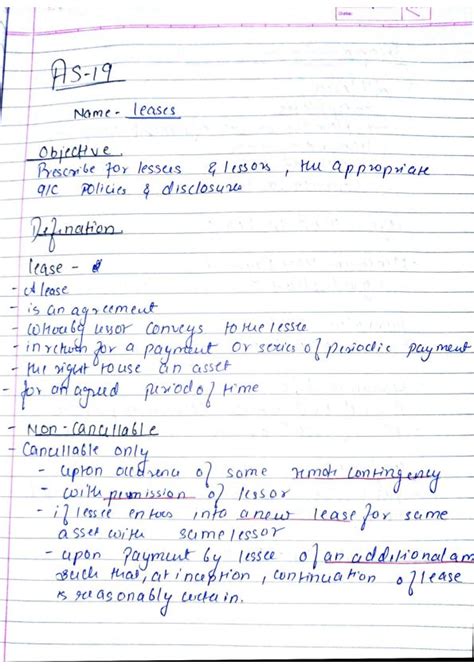 Date:
AS-19
Name - leases
Objective
Prescribe for lessees & lessors, the appropriate
a/c policies & disclosures
Defination
lease -
- A lease
- is an agreement
- whereby lessor conveys to the lessee
- in return for a payment or series of periodic payment
- the right to use an asset
- for an agreed period of time
- Non-cancellable
- Cancellable only
- upton occurence of some remote contingency
- with permission of lessor
- if lessee enters into a new lease for same
asset with same lessor
- upon payment by lessee of an additional am
such that, at inception, continuation of lease
is reasonably certain.